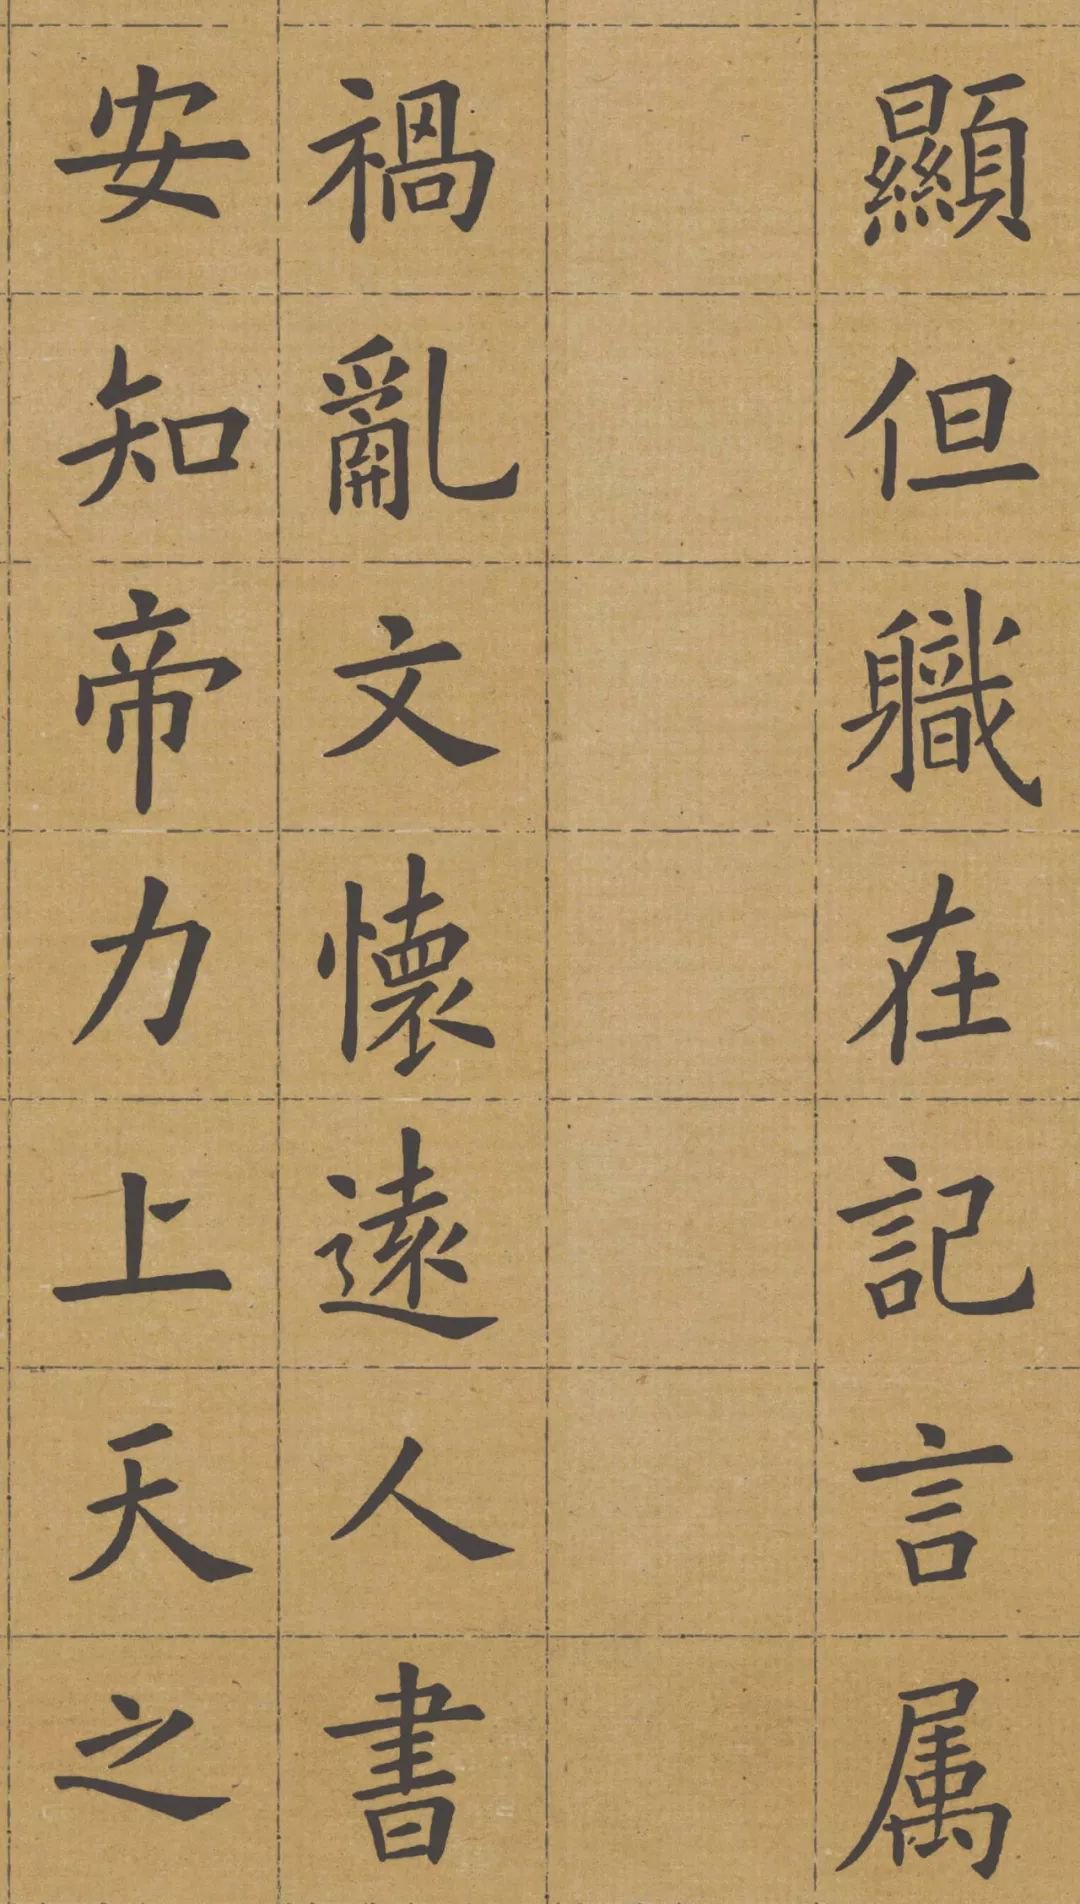 顯但職在記言属
禍亂文懷遠人書
安知帝力上天之